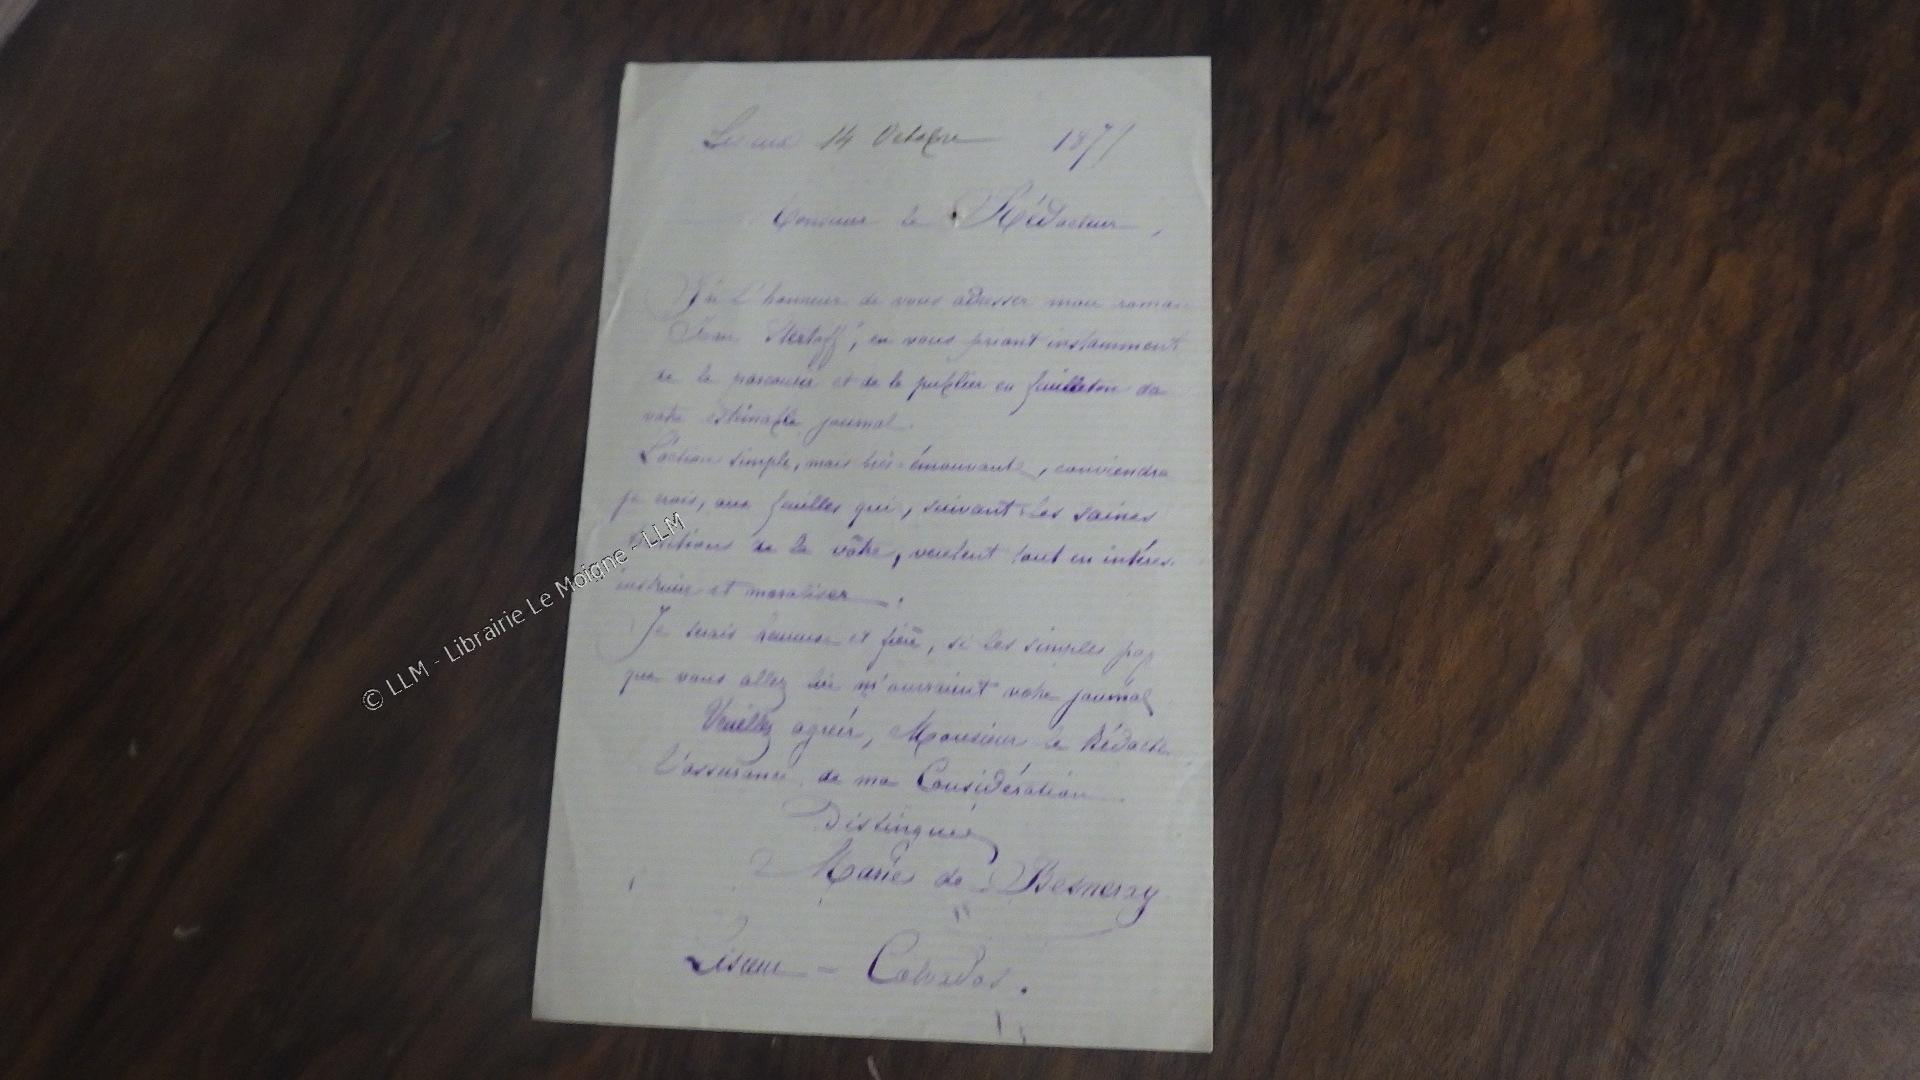 Lisieux 14 Octobre 1877
Monsieur le Rédacteur,
J'ai l'honneur de vous adresser mon roman
Stertoff", en vous priant instamment
de le parcourir et de le publier en feuilleton de
votre estimable journal.
L'action simple, mais très-émouvante, conviendra
je crois, aux feuilles qui, suivant les saines
traditions de la vôtre, veulent tout en intéres.
instruire et moraliser.
Je serais heureuse et fière, si les simples pag
que vous allez lire m'ouvraient votre journal
Veuillez agréer, Monsieur le Rédacte
l'assurance de ma Considération
Distinguée
Marie de Besneray
Lisieux - Calvados.
© LLM - Librairie Le Moigne - LLM